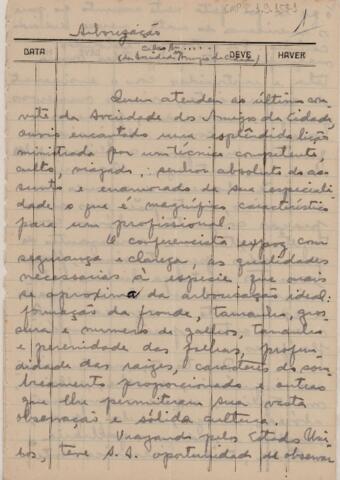 Arborização
1
DATA
DEVE
HAVER
(da Sociedade Amigos da Cidade)
Quem atendeu ao último con-
vite da Sociedade dos Amigos da Cidade,
ouviu encantado uma esplêndida lição
ministrada por um técnico competente,
culto, viajado, senhor absoluto do as-
sunto e enamorado de sua especiali-
dade o que é magnífica característica
para um profissional.
O conferencista expoz com
segurança e clareza, as qualidades
necessarias á especie que mais
se aproxima da arborisação ideal:
formação da fronde, tamanho, gros-
sura e numero de galhos, tamanho
e perenidade das folhas, profun-
didade das raizes, caractéres do som-
breamento proporcionado e outras
que lhe permitiram sua vasta
observação e sólida cultura.
Viajando pelos Estados Uni-
dos, teve S. S. oportunidade de observar